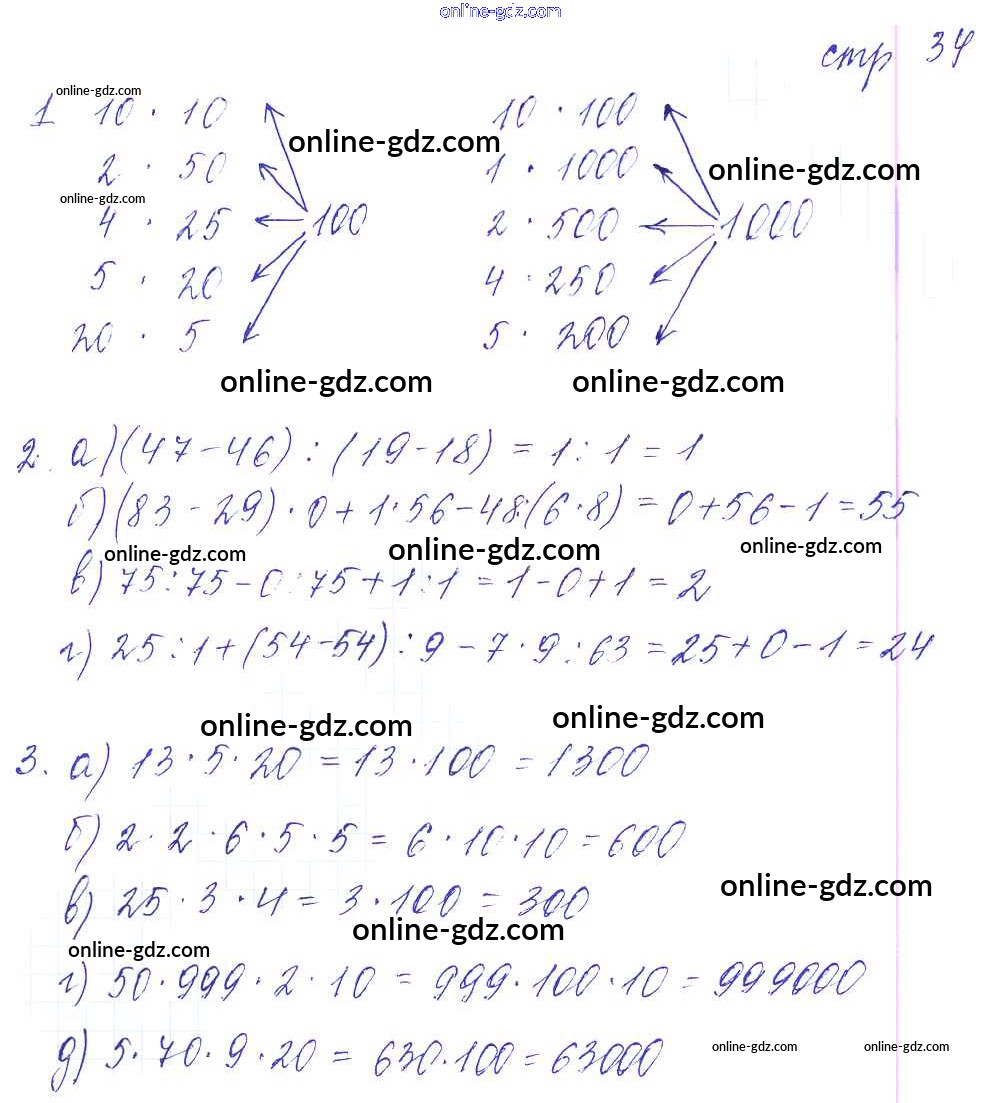 online-gdz.com
стр 34
online-gdz.com
1 10 · 10
10 · 100
online-gdz.com
2 · 50
1 · 1000
online-gdz.com
online-gdz.com
4 · 25
100
2 · 500
1000
5 · 20
4 · 250
20 · 5
5 · 200
online-gdz.com
online-gdz.com
2. а) (47-46) : (19-18) = 1 : 1 = 1
б) (83 - 29) · 0 + 1 · 56 - 48 : (6 · 8) = 0 + 56 - 1 = 55
online-gdz.com
online-gdz.com
online-gdz.com
в) 75 : 75 - 0 : 75 + 1 : 1 = 1 - 0 + 1 = 2
г) 25 : 1 + (54 - 54) : 9 - 7 · 9 : 63 = 25 + 0 - 1 = 24
online-gdz.com
online-gdz.com
3. а) 13 · 5 · 20 = 13 · 100 = 1300
б) 2 · 2 · 6 · 5 · 5 = 6 · 10 · 10 = 600
online-gdz.com
в) 25 · 3 · 4 = 3 · 100 = 300
online-gdz.com
online-gdz.com
г) 50 · 999 · 2 · 10 = 999 · 100 · 10 = 999000
д) 5 · 70 · 9 · 20 = 630 · 100 = 63000
online-gdz.com
online-gdz.com